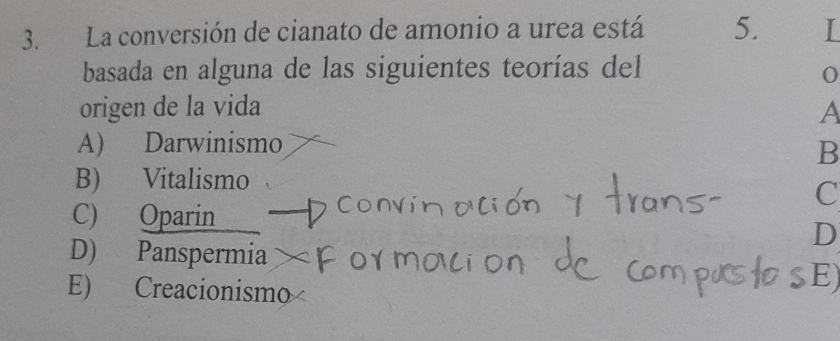 3. La conversión de cianato de amonio a urea está
basada en alguna de las siguientes teorías del
origen de la vida
A) Darwinismo
B) Vitalismo
C) Oparin → convinación y trans-
D) Panspermia formacion de compuestos
E) Creacionismo
5. L
o
A
B
C
D
E)